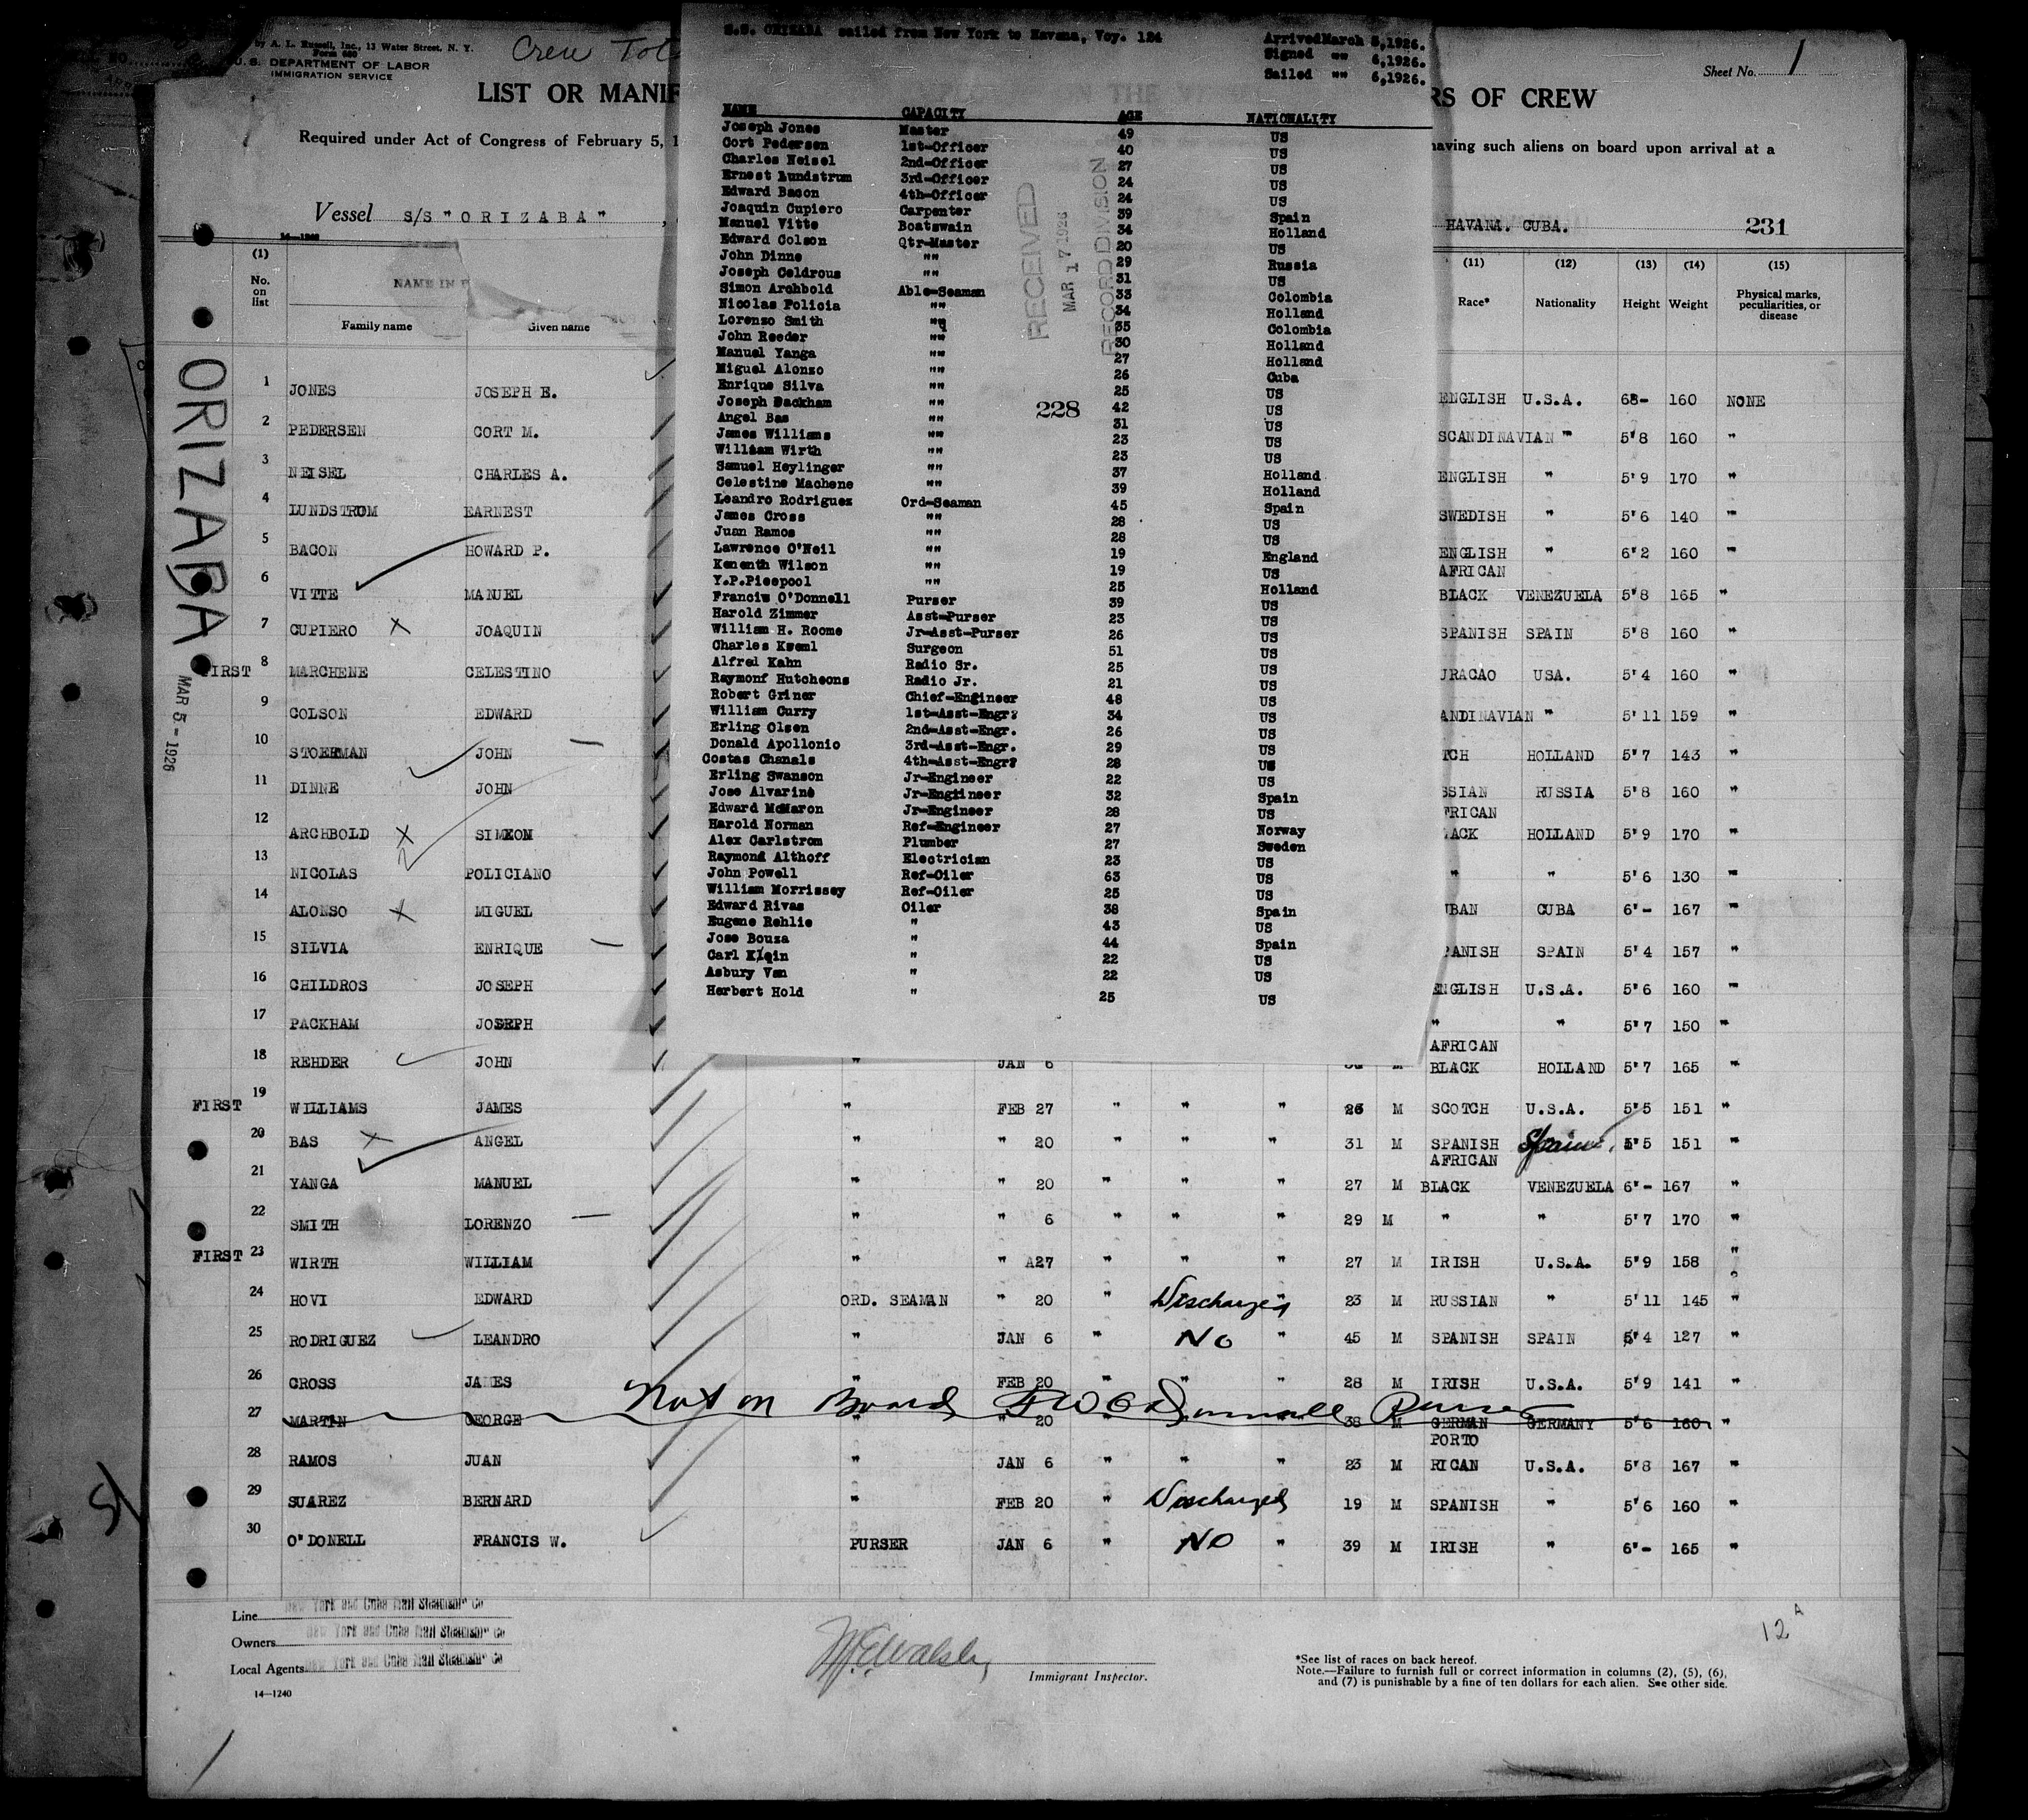 by A. L. Russell, Inc., 13 Water Street, N. Y.
Form 680
U. S. DEPARTMENT OF LABOR
IMMIGRATION SERVICE
Crew
Sheet No. 1
LIST OR MANIF
RS OF CREW
Required under Act of Congress of February 5, 1
having such aliens on board upon arrival at a
Vessel S/S "ORIZABA" ,
HAVANA. CUBA.
231
14-1240
S.S. ORIZABA sailed from New York to Havana, Voy. 124
Arrived March 5,1926.
Signed "" 6,1926.
Sailed "" 6,1926.
NAME CAPACITY AGE NATIONALITY
Joseph Jones Master 49 US
Cort Pedersen 1st-Officer 40 US
Charles Neisel 2nd-Officer 27 US
Ernest Lundstrum 3rd-Officer 24 US
Edward Bacon 4th-Officer 24 US
Joaquin Cupiero Carpenter 39 Spain
Manuel Vitte Boatswain 34 Holland
Edward Colson Qtr-Master 20 US
John Dinne "" 29 Russia
Joseph Celdrous "" 31 US
Simon Archbold Able-Seaman 33 Colombia
Nicolas Policia "" 34 Holland
Lorenzo Smith "" 35 Colombia
John Reeder "" 30 Holland
Manuel Yanga "" 27 Holland
Miguel Alonzo "" 26 Cuba
Enrique Silva "" 25 US
Joseph Dackham "" 42 US
Angel Bas "" 31 US
James Williams "" 23 US
William Wirth "" 23 US
Samuel Heylinger "" 37 Holland
Celestine Machene "" 39 Holland
Leandro Rodriguez Ord-Seaman 45 Spain
James Cross "" 28 US
Juan Ramos "" 28 US
Lawrence O'Neil "" 19 England
Kenenth Wilson "" 19 US
Y.P.Pieepool "" 25 Holland
Francis O'Donnell Purser 39 US
Harold Zimmer Asst-Purser 23 US
William H. Roome Jr-Asst-Purser 26 US
Charles Kweml Surgeon 51 US
Alfred Kahn Radio Sr. 25 US
Raymonf Hutcheons Radio Jr. 21 US
Robert Griner Chief-Engineer 48 US
William Curry 1st-Asst-Engr? 34 US
Erling Olsen 2nd-Asst-Engr. 26 US
Donald Apollonio 3rd-Asst-Engr. 29 US
Costas Chanals 4th-Asst-Engr? 28 US
Erling Swanson Jr-Engineer 22 US
Jose Alvarine Jr-Engtineer 32 Spain
Edward McMaron Jr-Engineer 28 US
Harold Norman Ref-Engineer 27 Norway
Alex Carlstrom Plumber 27 Sweden
Raymond Althoff Electrician 23 US
John Powell Ref-Oiler 63 US
William Morrissey Ref-Oiler 25 US
Edward Rivas Oiler 38 Spain
Eugene Rehlie " 43 US
Jose Bouza " 44 Spain
Carl Klein " 22 US
Asbury Van " 22 US
Herbert Hold " 25 US
RECEIVED
MAR 17 1926
RECORD DIVISION
228
ORIZABA
MAR 5 - 1926
(1) (11) (12) (13) (14) (15)
No. on list
NAME IN F
Family name Given name
Race* Nationality Height Weight Physical marks, peculiarities, or disease
1 JONES JOSEPH E. ENGLISH U.S.A. 68- 160 NONE
2 PEDERSEN CORT M. SCANDINAVIAN " 5'8 160 "
3 NEISEL CHARLES A. ENGLISH " 5'9 170 "
4 LUNDSTROM EARNEST SWEDISH " 5'6 140 "
5 BACON HOWARD P. ENGLISH " 6'2 160 "
6 VITTE MANUEL AFRICAN BLACK VENEZUELA 5'8 165 "
7 CUPIERO X JOAQUIN SPANISH SPAIN 5'8 160 "
FIRST 8 MARCHENE CELESTINO URACAO USA. 5'4 160 "
9 COLSON EDWARD ANDINAVIAN " 5'11 159 "
10 STOERMAN JOHN TCH HOLLAND 5'7 143 "
11 DINNE JOHN SSIAN RUSSIA 5'8 160 "
12 ARCHBOLD X SIMEON FRICAN ACK HOLLAND 5'9 170 "
13 NICOLAS POLICIANO " " 5'6 130 "
14 ALONSO X MIGUEL UBAN CUBA 6'- 167 "
15 SILVIA ENRIQUE PANISH SPAIN 5'4 157 "
16 CHILDROS JOSEPH ENGLISH U.S.A. 5'6 160 "
17 PACKHAM JOSEPH " " 5'7 150 "
18 REHDER JOHN " JAN 6 M AFRICAN BLACK HOLLAND 5'7 165 "
FIRST 19 WILLIAMS JAMES " FEB 27 " " " 26 M SCOTCH U.S.A. 5'5 151 "
20 BAS X ANGEL " " 20 " " " 31 M SPANISH Spain. 5'5 151 "
21 YANGA MANUEL " " 20 " " " 27 M AFRICAN BLACK VENEZUELA 6'- 167 "
22 SMITH LORENZO " " 6 " " " 29 M " " 5'7 170 "
FIRST 23 WIRTH WILLIAM " " A27 " " " 27 M IRISH U.S.A. 5'9 158 "
24 HOVI EDWARD ORD. SEAMAN " 20 " Discharged " 23 M RUSSIAN " 5'11 145 "
25 RODRIGUEZ LEANDRO " JAN 6 " No " 45 M SPANISH SPAIN 5'4 127 "
26 CROSS JAMES " FEB 20 " " " 28 M IRISH U.S.A. 5'9 141 "
Not on Board FWO'Donnell Purser
27 MARTIN GEORGE " " 20 " " " 38 M GERMAN GERMANY 5'6 160 "
28 RAMOS JUAN " JAN 6 " " " 23 M PORTO RICAN U.S.A. 5'8 167 "
29 SUAREZ BERNARD " FEB 20 " Discharged 19 M SPANISH " 5'6 160 "
30 O'DONELL FRANCIS W. PURSER JAN 6 " NO " 39 M IRISH " 6'- 165 "
Line New York and Cuba Mail Steamship Co
Owners New York and Cuba Mail Steamship Co
Local Agents New York and Cuba Mail Steamship Co
14-1240
Immigrant Inspector.
12 A
*See list of races on back hereof.
Note.—Failure to furnish full or correct information in columns (2), (5), (6),
and (7) is punishable by a fine of ten dollars for each alien. See other side.